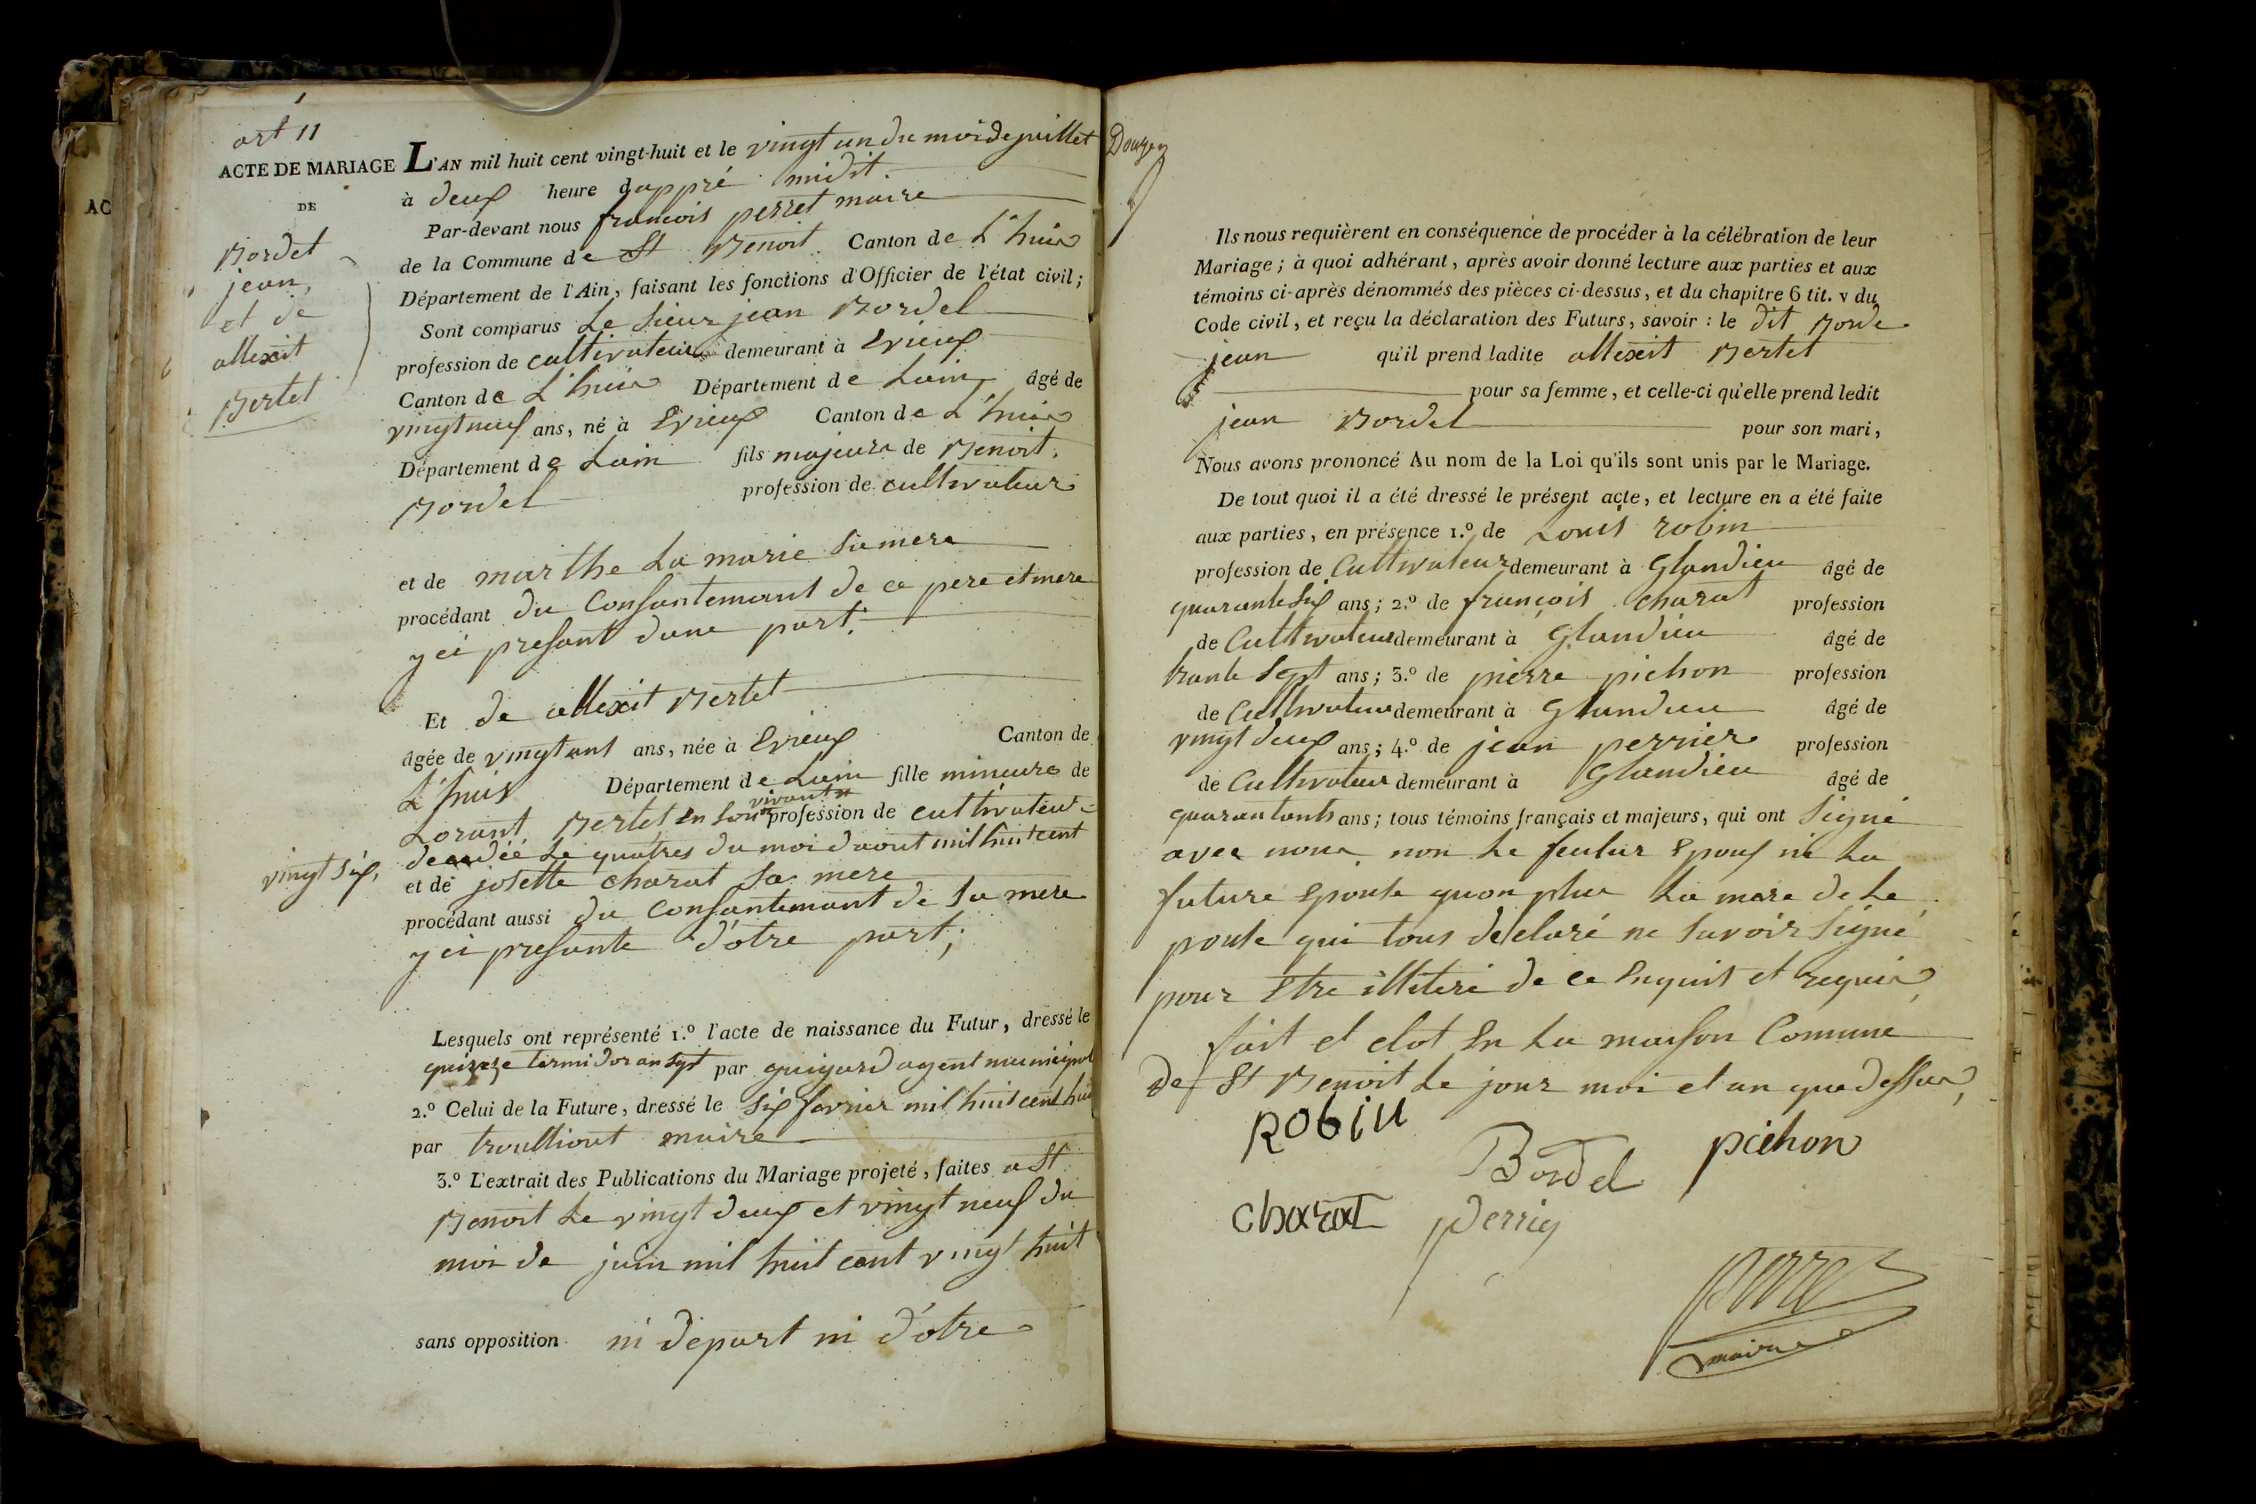 art 11
ACTE DE MARIAGE
DE
Bordet
jean,
et de
allexit
Bertet
L'AN mil huit cent vingt-huit et le vingt un du moi de juillet
à deux heure dappré midit
Par-devant nous francois perret maire
de la Commune de St Benoit Canton de L'huis
Département de l'Ain, faisant les fonctions d'Officier de l'état civil;
Sont comparus Le Sieur jean Bordel
profession de cultivateur demeurant à Evieux
Canton de L'huis Département de Lain âgé de
vingt neuf ans, né à Evieux Canton de L'huis
Département de Lain fils majeure de Benoit
Bordel profession de cultivateur
et de marthe La marie Sa mere
procédant du Consantemant de ce pere et mere
y ci presant dune part.
Et de allexit Bertet
âgée de vingt ant ans, née à Evieux Canton de
L'huis Département de Lain fille mineure de
Lorant Bertet En Son vivant profession de cultivateur
decedée Le quatres du moi daout mil huit cent
vingt six,
et de josette charat Sa mere
procédant aussi du Consantemant de Sa mere
y ci presante d'otre part;
Lesquels ont représenté 1.º l'acte de naissance du Futur, dressé le
quinze termidor an sept par guigard agent municipal
2.º Celui de la Future, dressé le Six favrier mil huit cent huit
par troulliout maire
3.º L'extrait des Publications du Mariage projeté, faites a St
Benoit Le vingt deux et vingt neuf du
moi de juin mil huit cent vingt huit
sans opposition ni depart ni d'otre
Ils nous requièrent en conséquence de procéder à la célébration de leur
Mariage; à quoi adhérant, après avoir donné lecture aux parties et aux
témoins ci-après dénommés des pièces ci-dessus, et du chapitre 6 tit. v du
Code civil, et reçu la déclaration des Futurs, savoir: le dit Borde
jean qu'il prend ladite allexit Bertet
pour sa femme, et celle-ci qu'elle prend ledit
jean Bordel pour son mari,
Nous avons prononcé Au nom de la Loi qu'ils sont unis par le Mariage.
De tout quoi il a été dressé le présent acte, et lecture en a été faite
aux parties, en présence 1.º de Louis robin
profession de Cultivateur demeurant à Glandieu âgé de
quarante six ans; 2.º de françois charat profession
de Cultivateur demeurant à Glandieu âgé de
trante Sept ans; 3.º de pierre pichon profession
de Cultivateur demeurant à Glandieu âgé de
vingt deux ans; 4.º de jean perrier profession
de Cultivateur demeurant à Glandieu âgé de
quarantants ans; tous témoins français et majeurs, qui ont Signé
avec nous non Le feutur Epoux ni La
future Epouse quon plus La mere de Le
pouse qui tous declaré ne Savoir Signé
pour Etre illiteré de ce Enquis et requis
fait et clot En La maison Comune
de St Benoit Le jour moi et an que dessus,
Robin
Bordel
pichon
charat
perrier
perret
maire